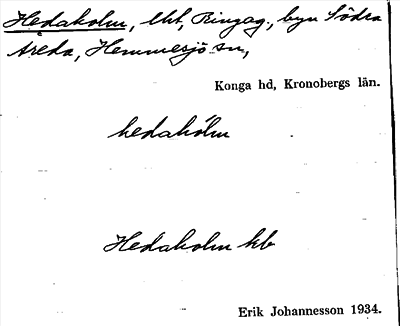 Hedaholm, lht, Ringag., byn Södra
Åreda, Hemmesjö sn,
Konga hd, Kronobergs län.
hedahòlm
Hedaholm kb
Erik Johannesson 1934.